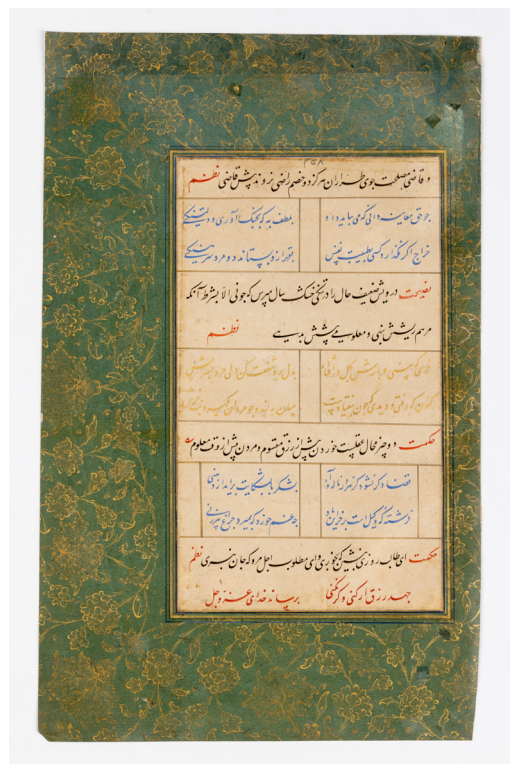 و قاضی مصلحت جوی طراران هرگز دو خصم راضی نروند پیش قاضی نظم
چو حق معاینه دانی که می بباید داد بلطف به که بجنگ آوری و دلتنگی
خراج اگر نگذارد کسی بطیبت نفس بقهر ازو بستانند و مزد سرهنگی
نصیحت درویش ضعیف حال را در تنگی خشک سال مپرس که چونی الا بشرط آنکه
مرهم ریشش نهی و معلومی پیشش نظم
خری که بینی و باری بگل در بدل برو شفقت کن ولی مرو بسرش
کنون که رفتی و میان ببند و چو مردان بگیر
حکمت دو چیز محال عقلست خوردن پیش از رزق مقسوم و مردن پیش از وقت معلوم
قضا دگر نشود گر هزار ناله و آه بشکر یا بشکایت برآید از دهنی
فرشته که وکیل است بر خزاین باد چه غم خورد که بمیرد چراغ پیرزنی
حکمت ای طالب روزی بنشین که بخوری و ای مطلوب اجل مرو که جان نبری نظم
جهد رزق ار کنی و گر نکنی برساند خدای عز و جل